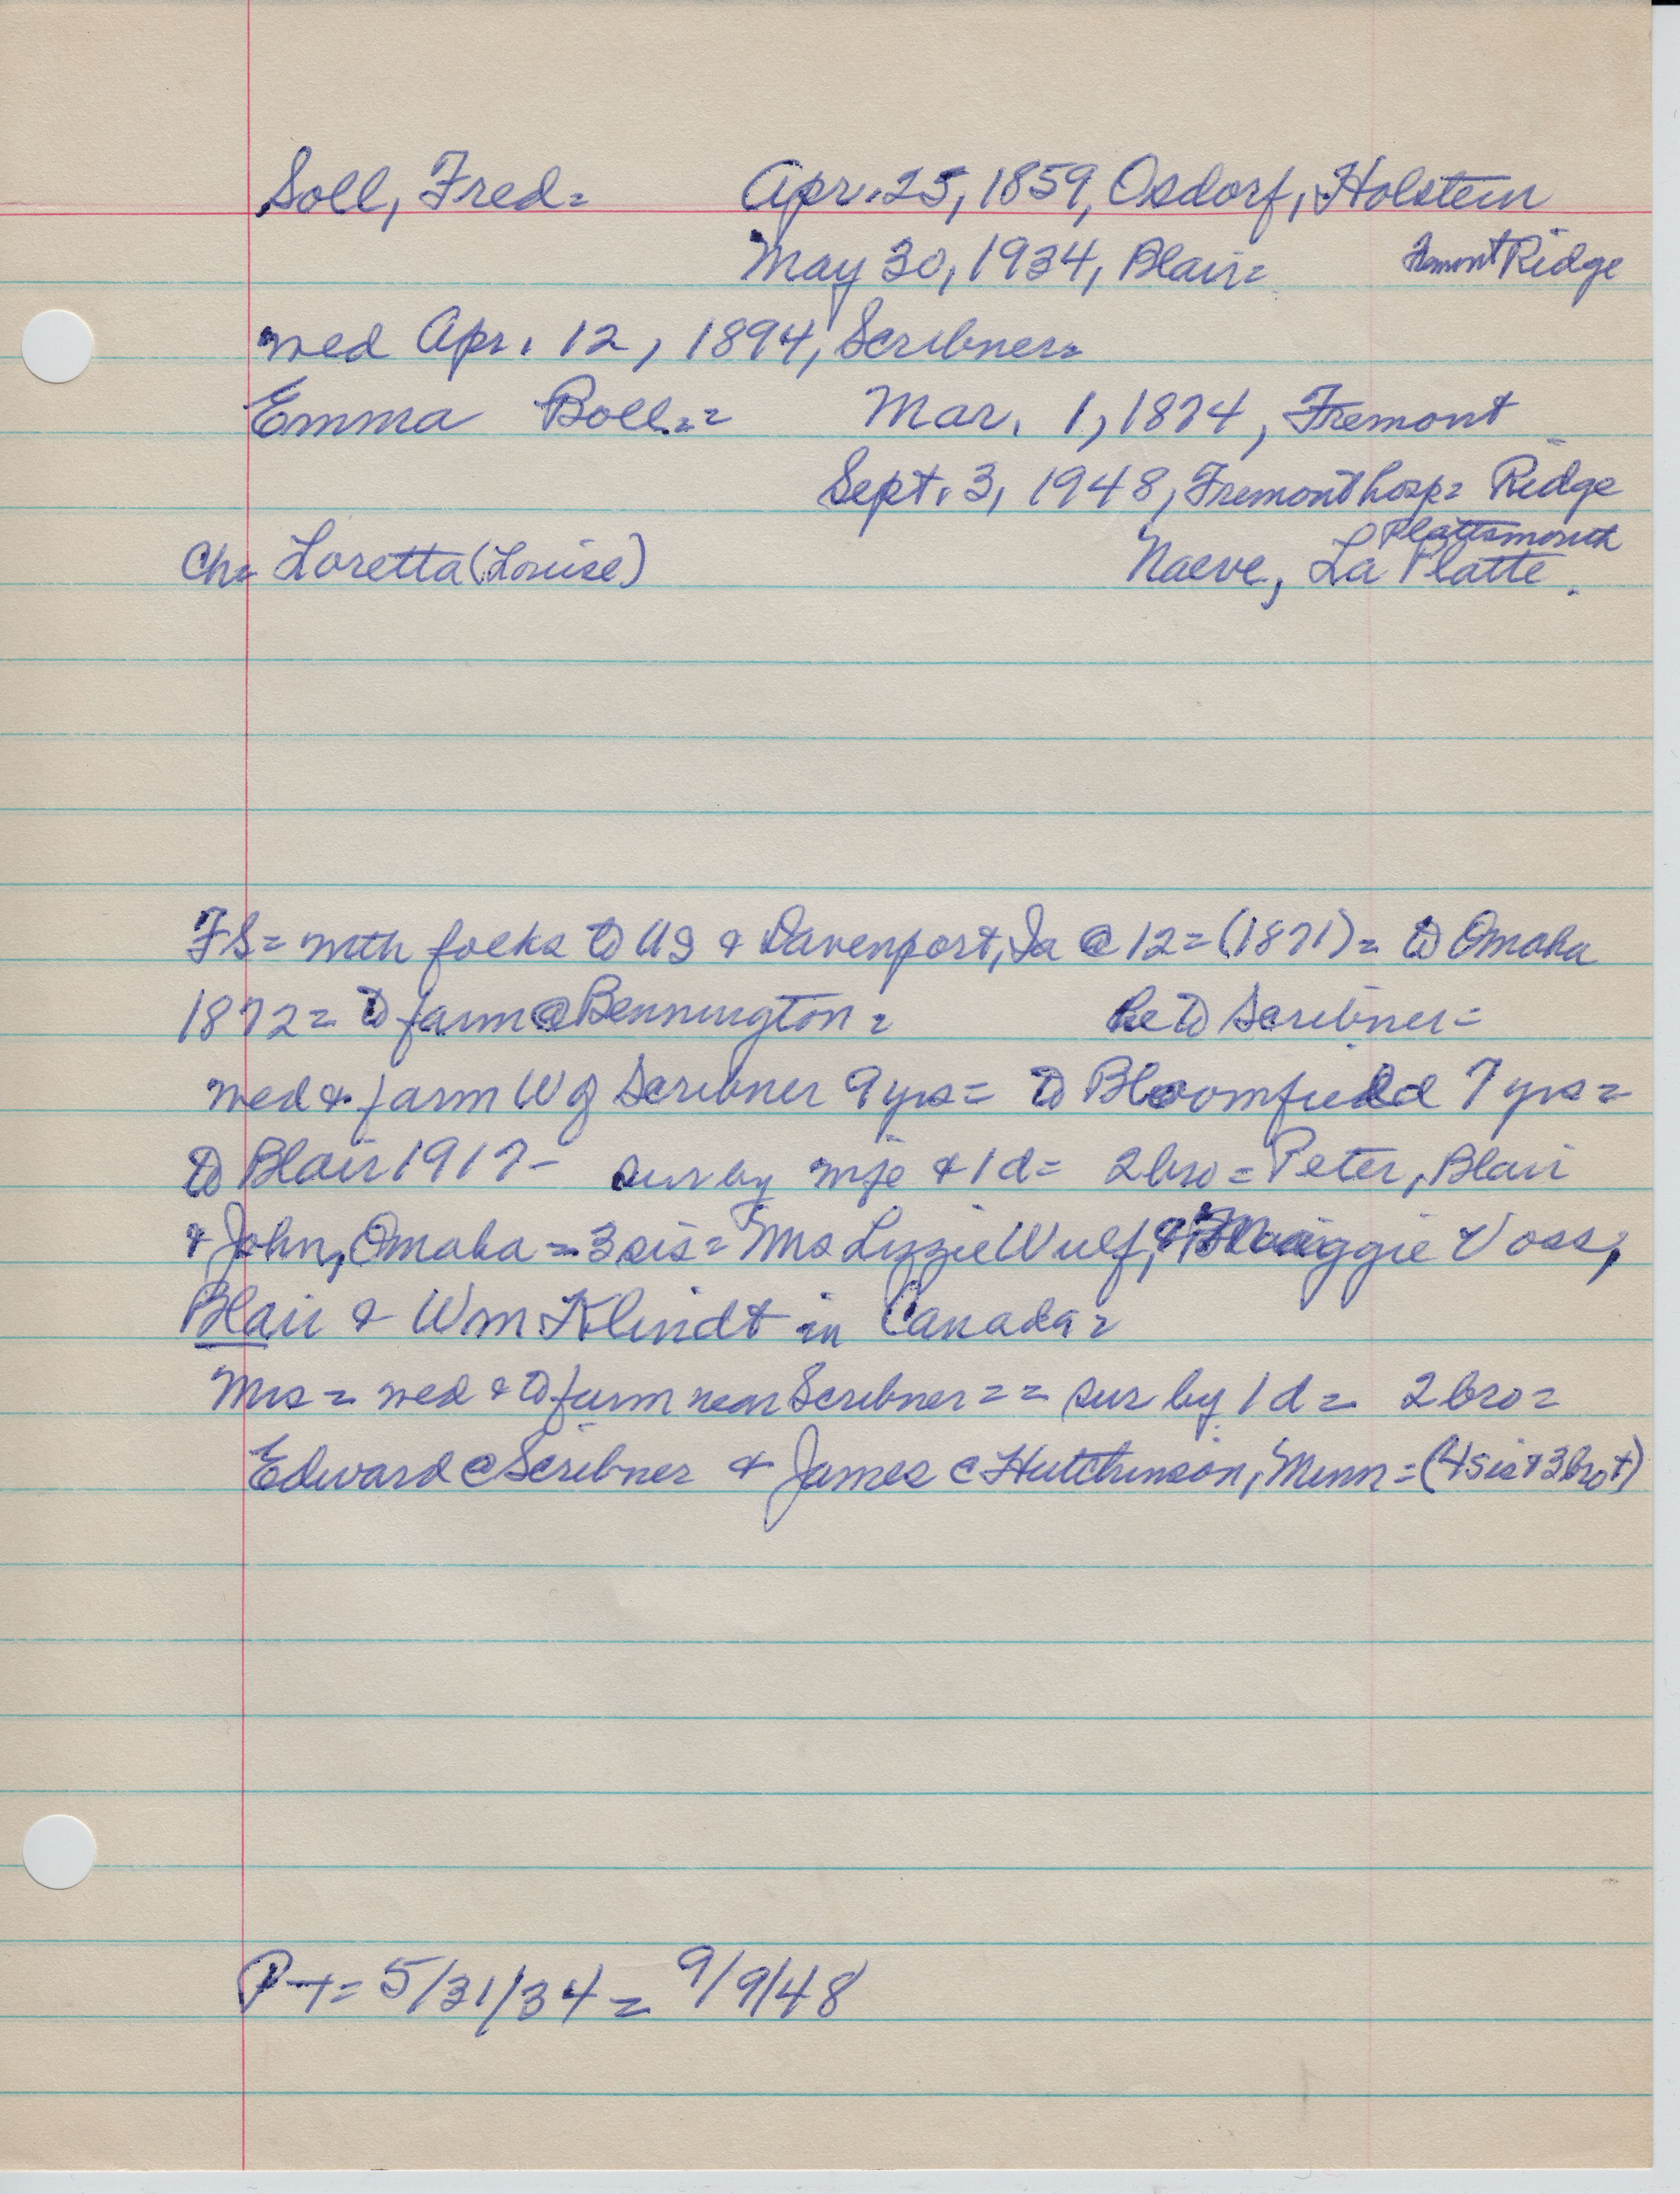 Soll, Fred= Apr. 25, 1859, Osdorf, Holstein
May 30, 1934, Blair= Fremont Ridge
wed Apr. 12, 1894, Scribner=
Emma Boll== Mar. 1, 1874, Fremont
Sept. 3, 1948, Fremont hosp= Ridge
Plattsmouth
Ch= Loretta (Louise) Naeve, La Platte.
FS= with folks to US & Davenport, Ia @ 12= (1871)= to Omaha
1872= to farm @ Bennington= he to Scribner=
wed & farm W of Scribner 9 yrs= to Bloomfield 7 yrs=
to Blair 1917- sur by wife & 1 d= 2 bro= Peter, Blair
& John, Omaha= 3 sis= Mrs Lizzie Wulf, Maggie Voss,
Blair & Wm Klindt in Canada=
Mrs= wed & to farm near Scribner== sur by 1 d= 2 bro=
Edward @ Scribner & James @ Hutchinson, Minn= (4 sis & 3 bro +)
P-T= 5/31/34= 9/9/48